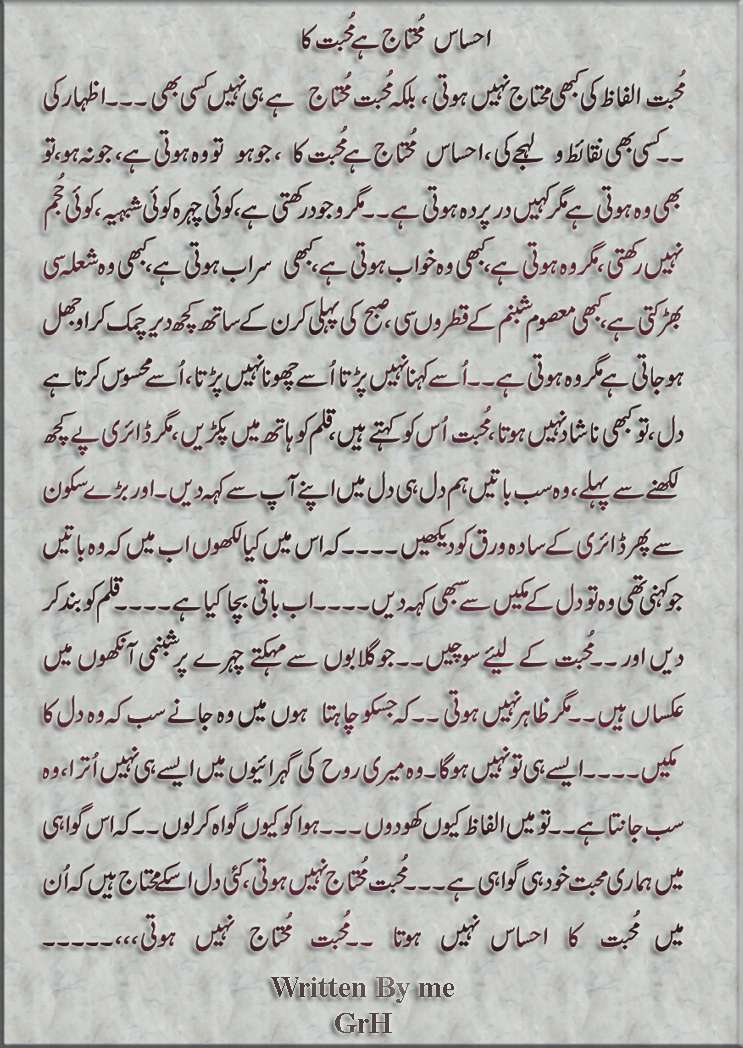 احساس مُحتاج ہے مُحبت کا
مُحبت الفاظ کی کبھی محتاج نہیں ہوتی ، بلکہ مُحبت مُحتاج ہے ہی نہیں کسی بھی ۔۔۔اظہار کی
۔۔کسی بھی نقائط و لہجے کی،احساس مُحتاج ہے مُحبت کا ، جو ہو تو وہ ہوتی ہے، جو نہ ہو،تو
بھی وہ ہوتی ہے مگر کہیں در پردہ ہوتی ہے۔۔مگر وجود رکھتی ہے،کوئی چہرہ کوئی شبہیہ ،کوئی حُجم
نہیں رکھتی ،مگر وہ ہوتی ہے،کبھی وہ خواب ہوتی ہے،کبھی سراب ہوتی ہے،کبھی وہ شعلہ سی
بھڑکتی ہے،کبھی معصوم شبنم کے قطروں سی ،صبح کی پہلی کرن کے ساتھ کچھ دیر چمک کر اوجھل
ہو جاتی ہے مگر وہ ہوتی ہے۔۔اُسے کہنا نہیں پڑتا اُسے چھونا نہیں پڑتا،اُسے محسوس کرتا ہے
دل،تو کبھی ناشاد نہیں ہوتا،مُحبت اُس کو کہتے ہیں،قلم کو ہاتھ میں پکڑیں،مگر ڈائری پے کچھ
لکھنے سے پہلے،وہ سب باتیں ہم دل ہی دل میں اپنے آپ سے کہہ دیں۔اور بڑے سکون
سے پھر ڈائری کے سادہ ورق کو دیکھیں ۔۔۔۔کہ اس میں کیا لکھوں اب میں کہ وہ باتیں
جو کہنی تھی وہ تو دل کے مکیں سے سبھی کہہ دیں۔۔۔۔اب باقی بچا کیا ہے۔۔۔۔قلم کو بند کر
دیں اور ۔۔مُحبت کے لیئے سوچیں ۔۔جو گلابوں سے مہکتے چہرے پر شبنمی آنکھوں میں
عکساں ہیں۔۔مگر ظاہر نہیں ہوتی ۔۔کہ جسکو چاہتا ہوں میں وہ جانے سب کہ وہ دل کا
مکیں ۔۔۔۔ایسے ہی تو نہیں ہوگا۔وہ میری روح کی گہرائیوں میں ایسے ہی نہیں اُترا،وہ
سب جانتا ہے۔۔تو میں الفاظ کیوں کھو دوں ۔۔۔ہوا کو کیوں گواہ کر لوں ۔۔کہ اس گواہی
میں ہماری محبت خود ہی گواہی ہے۔۔۔مُحبت مُحتاج نہیں ہوتی ،کئی دل اسکے محتاج ہیں کہ اُن
میں مُحبت کا احساس نہیں ہوتا ۔۔مُحبت مُحتاج نہیں ہوتی،،،۔۔۔۔۔
Written By me
GrH